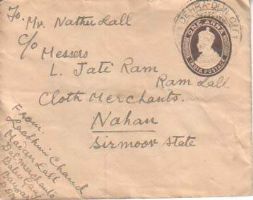 To,
Mr. Nathu Lall
C/o
Messrs
L. Jati Ram
Ram Lall
Cloth Merchants.
Nahan
Sirmoor State
DEHRA DUN CITY
ONE ANNA
INDIA POSTAGE
From:
Chand
Lall